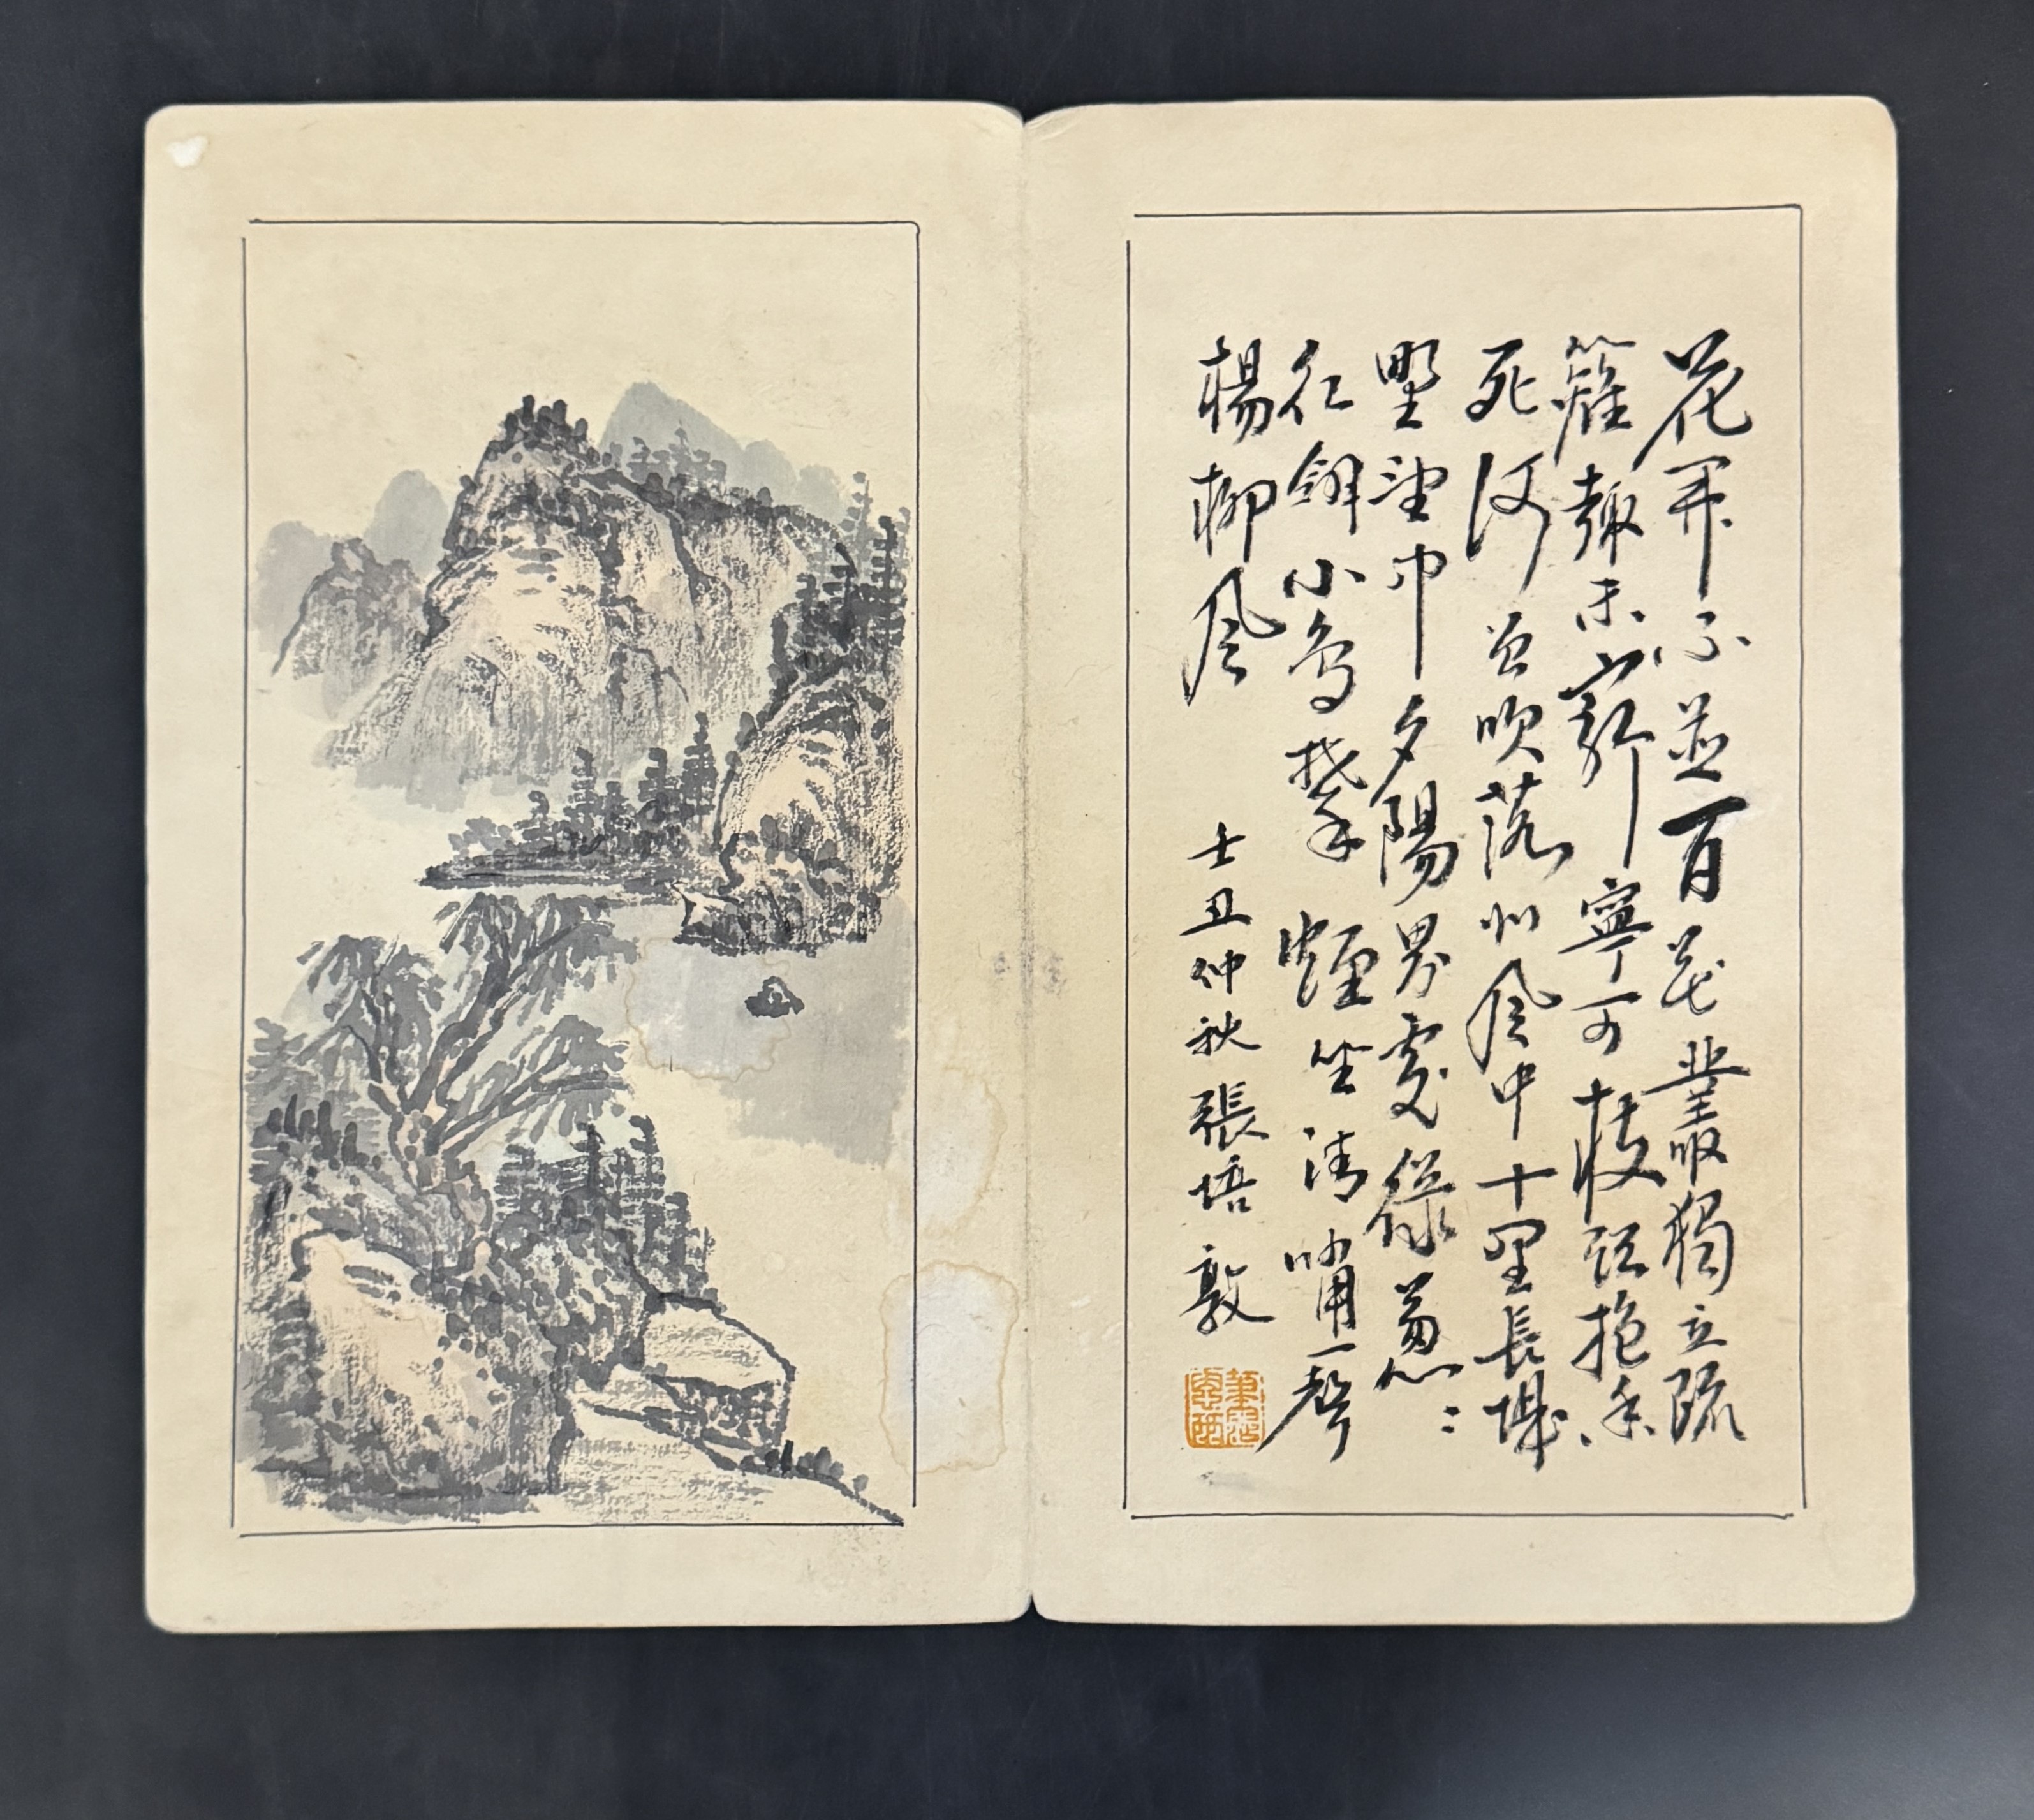 花開不並百花叢獨立疏
籬趣未窮寧可枝頭抱香
死何曾吹落北風中十里長堤
野望中夕陽界處綠蔥〻
紅翎小鳥煙坐清嘯一聲
楊柳風
士丑仲秋張培敦